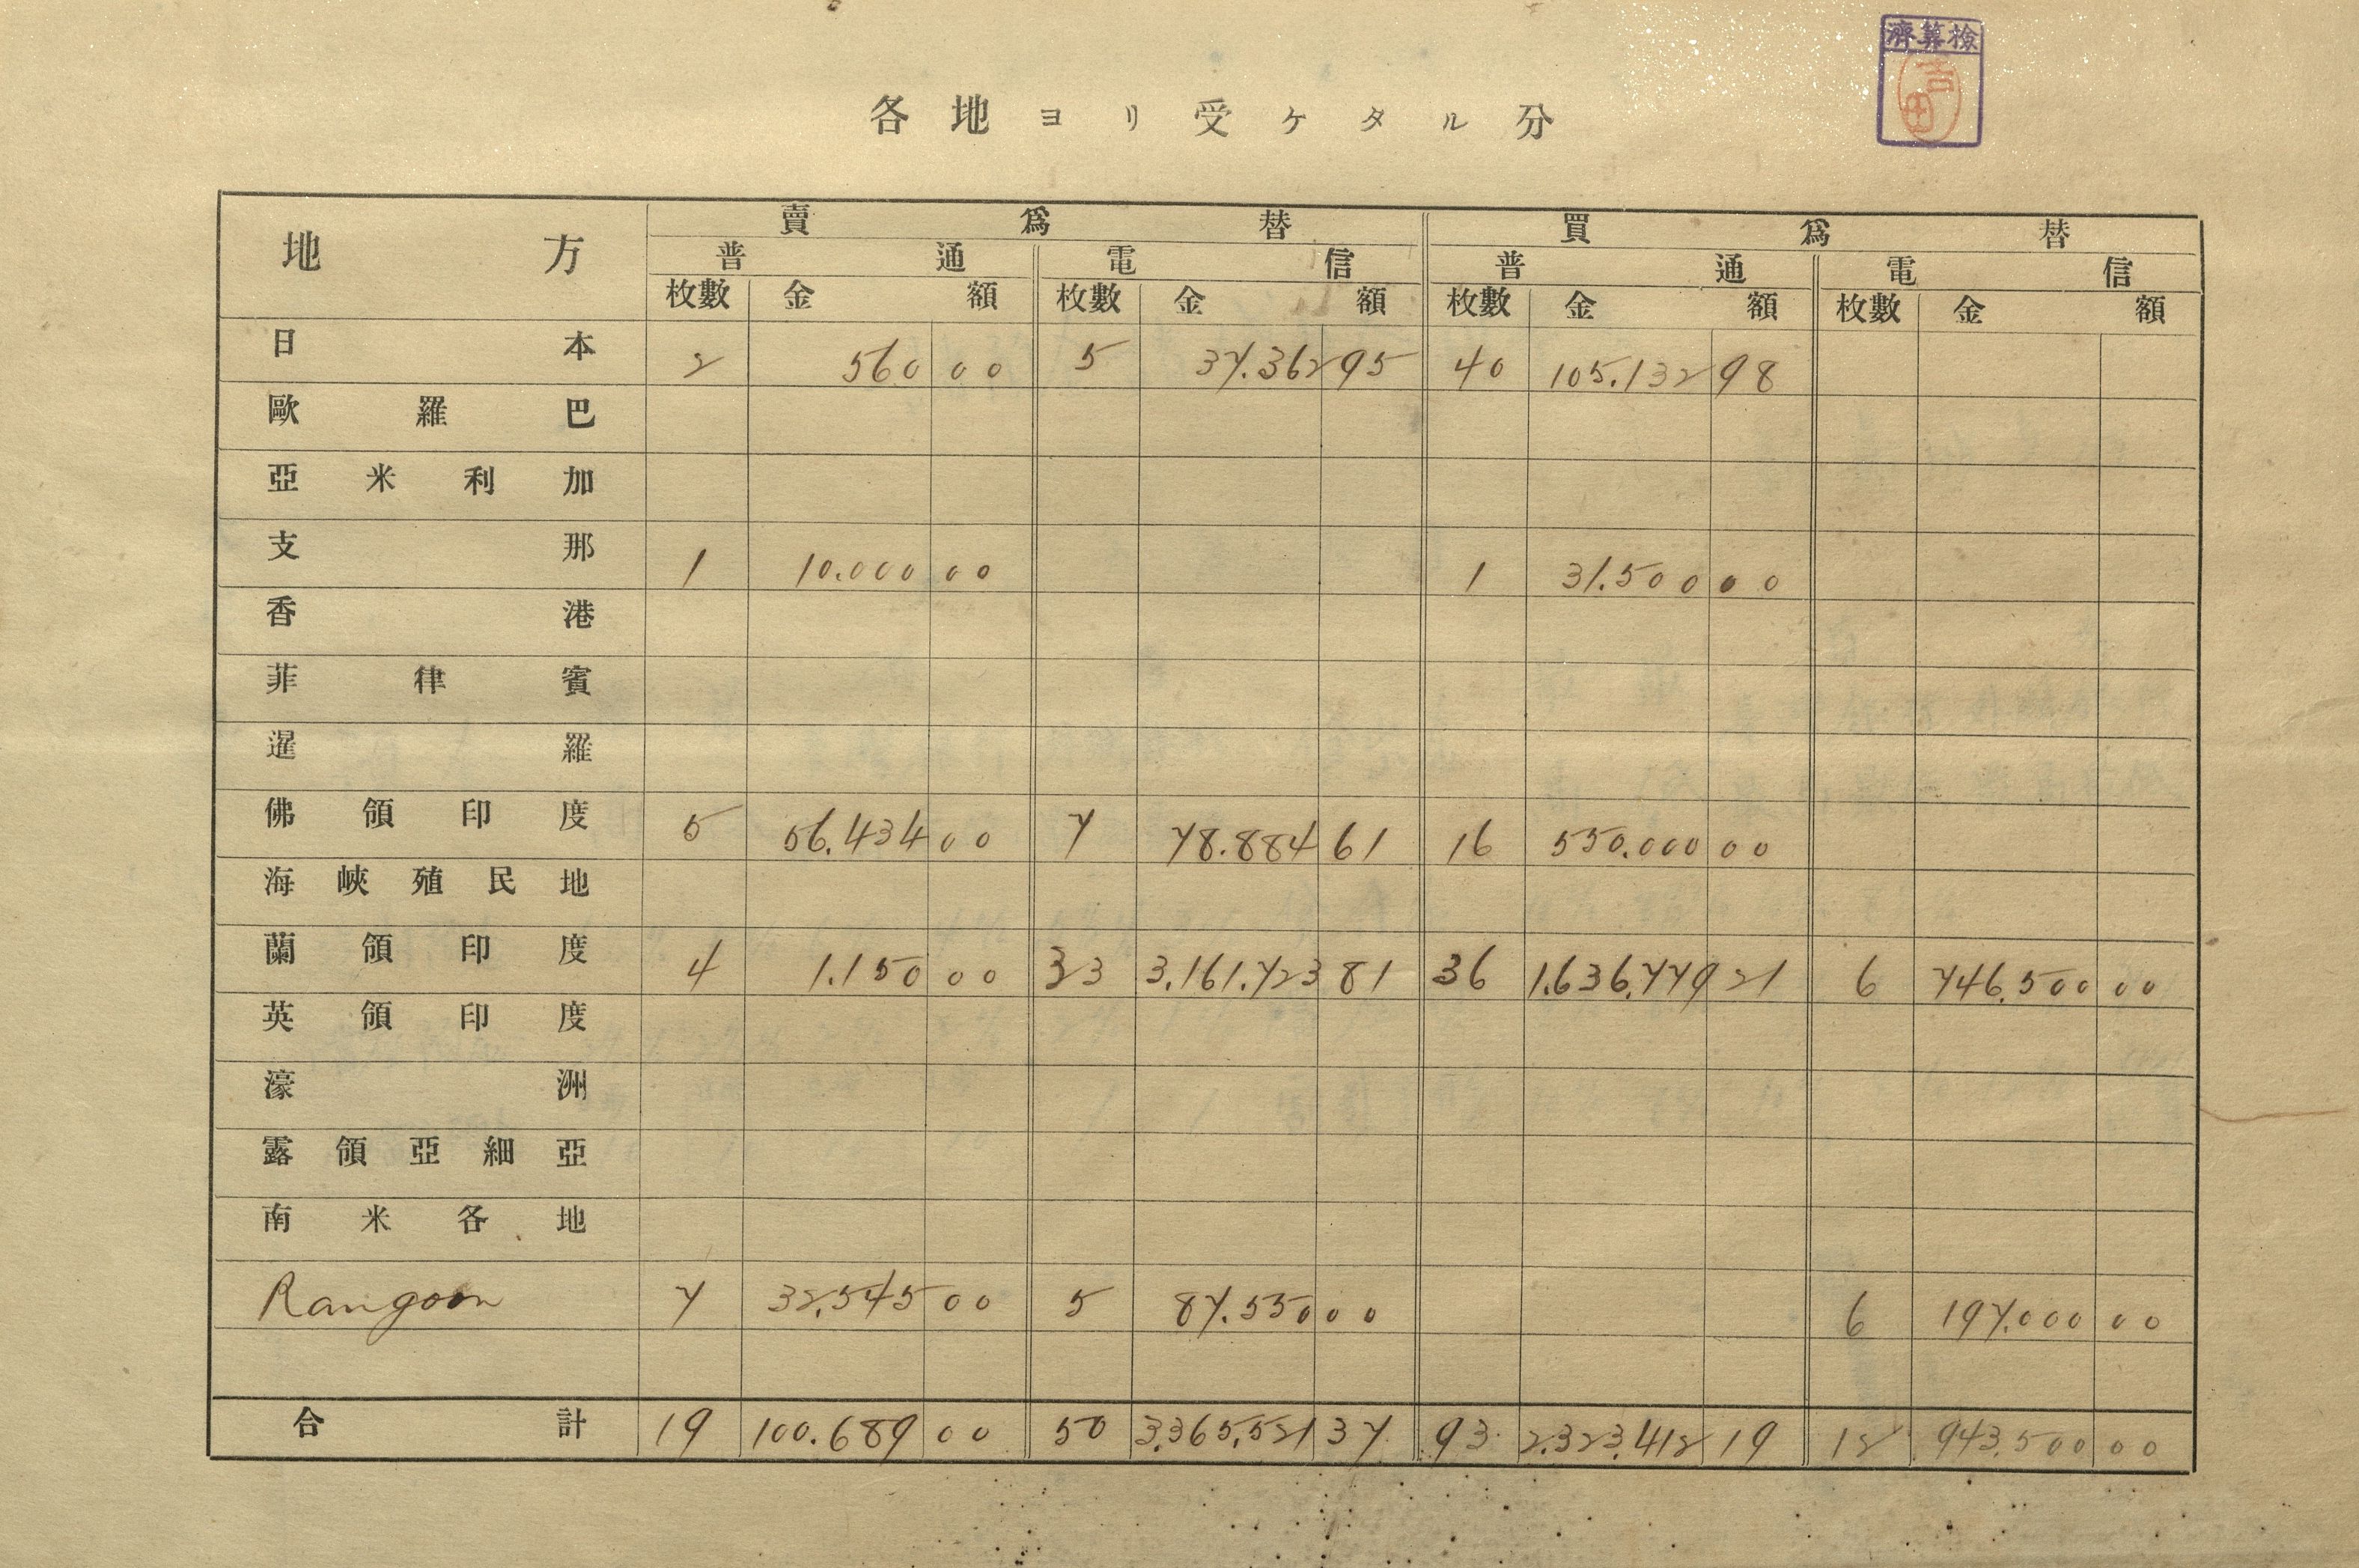 檢算濟
吉田
各地ヨリ受ケタル分
地方 賣爲替 買爲替
普通 電信 普通 電信
枚數 金額 枚數 金額 枚數 金額 枚數 金額
日本 2 560 00 5 37.362 95 40 105.132 98
歐羅巴
亞米利加
支那 1 10.000 00 1 31.500 00
香港
菲律賓
暹羅
佛領印度 5 56.434 00 7 78.884 61 16 550.000 00
海峽殖民地
蘭領印度 4 1.150 00 33 3.161.723 81 36 1.636.779 21 6 746.500 00
英領印度
濠洲
露領亞細亞
南米各地
Rangoon 7 32.545 00 5 87.550 00 6 197.000 00
合計 19 100.689 00 50 3.365.521 37 93 2.323.412 19 12 943.500 00